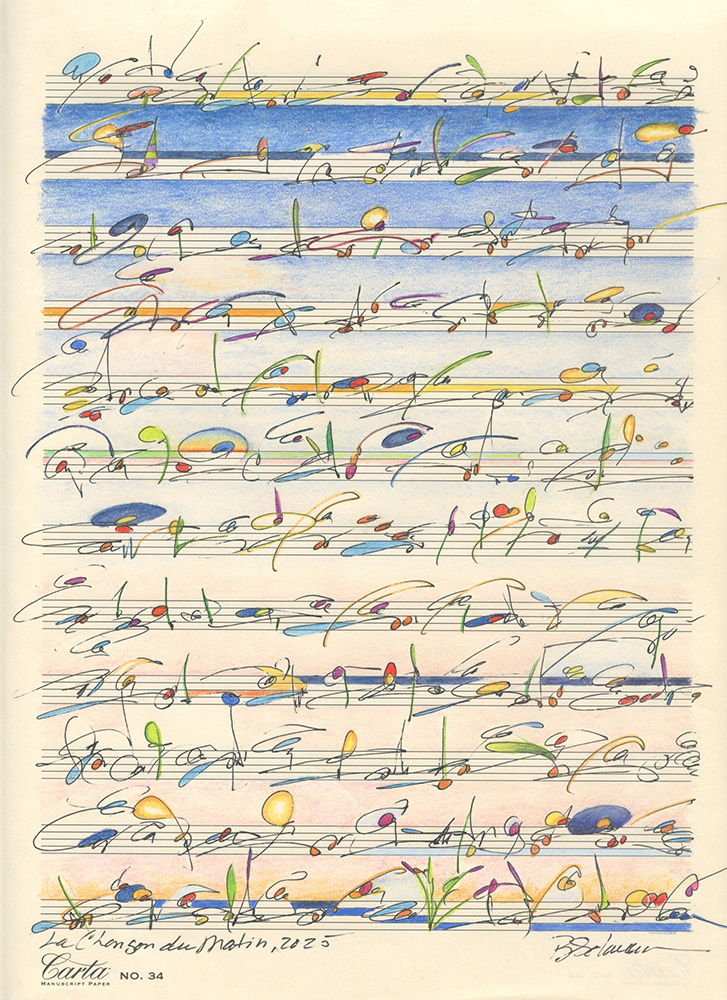 La Chanson du Matin, 2025
Carta NO. 34
MANUSCRIPT PAPER